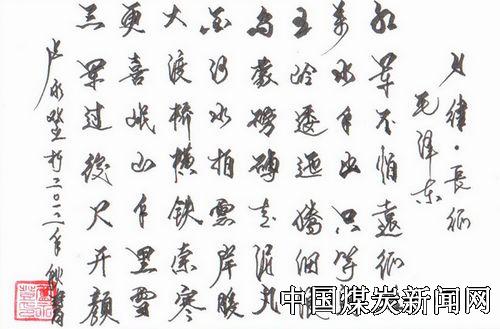 七律·長征
毛泽东
红军不怕遠征
萬水千山只等
五岭逶迤腾细浪
乌蒙磅礴走泥丸
金沙水拍雲岸暖
大渡桥横铁索寒
更喜岷山千里雪
三军过後尽开颜
卢永 二〇二二年秋
中国煤炭新闻网